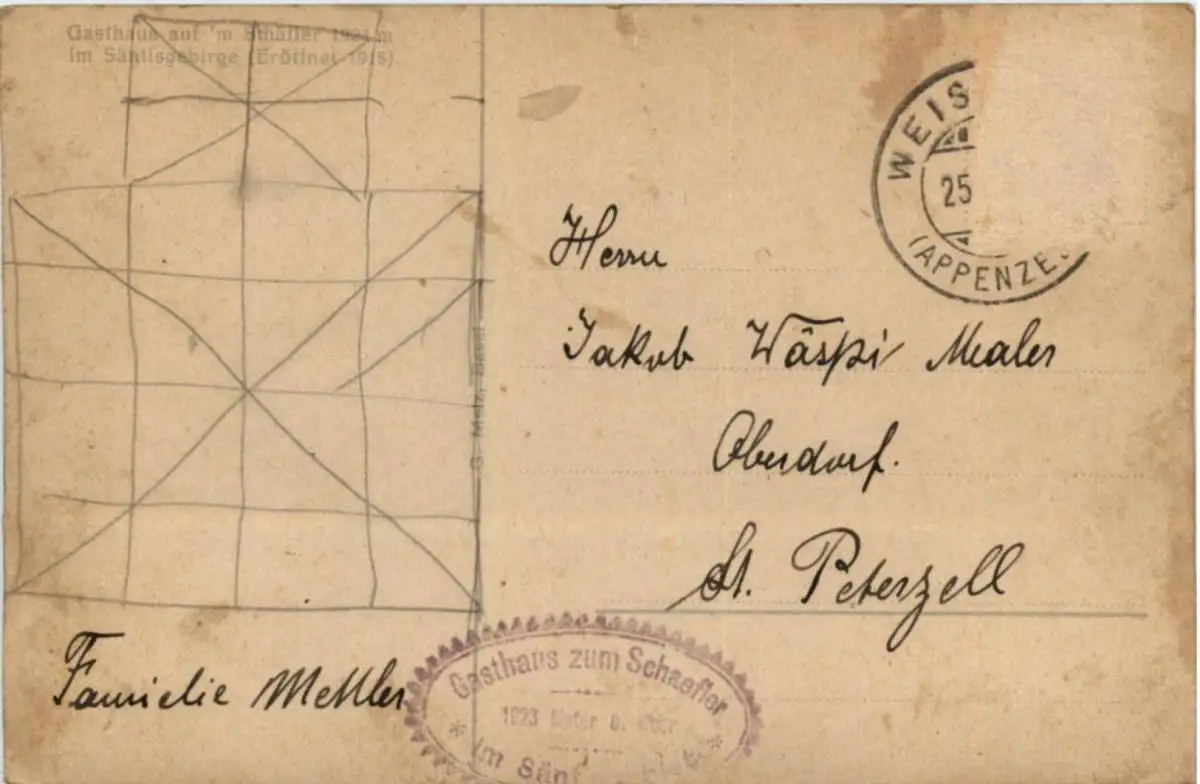 Gasthaus auf 'm Schäfler 1923 m
im Säntisgebirge (Eröffnet 1915).
WEIS
25
(APPENZE
Herrn
Jakob Wäspi Maler
Oberdorf.
St. Peterzell
G. Metz, Basel
Familie Mettler
Gasthaus zum Schaefler
1923 Meter ü. Meer
* im Sän *